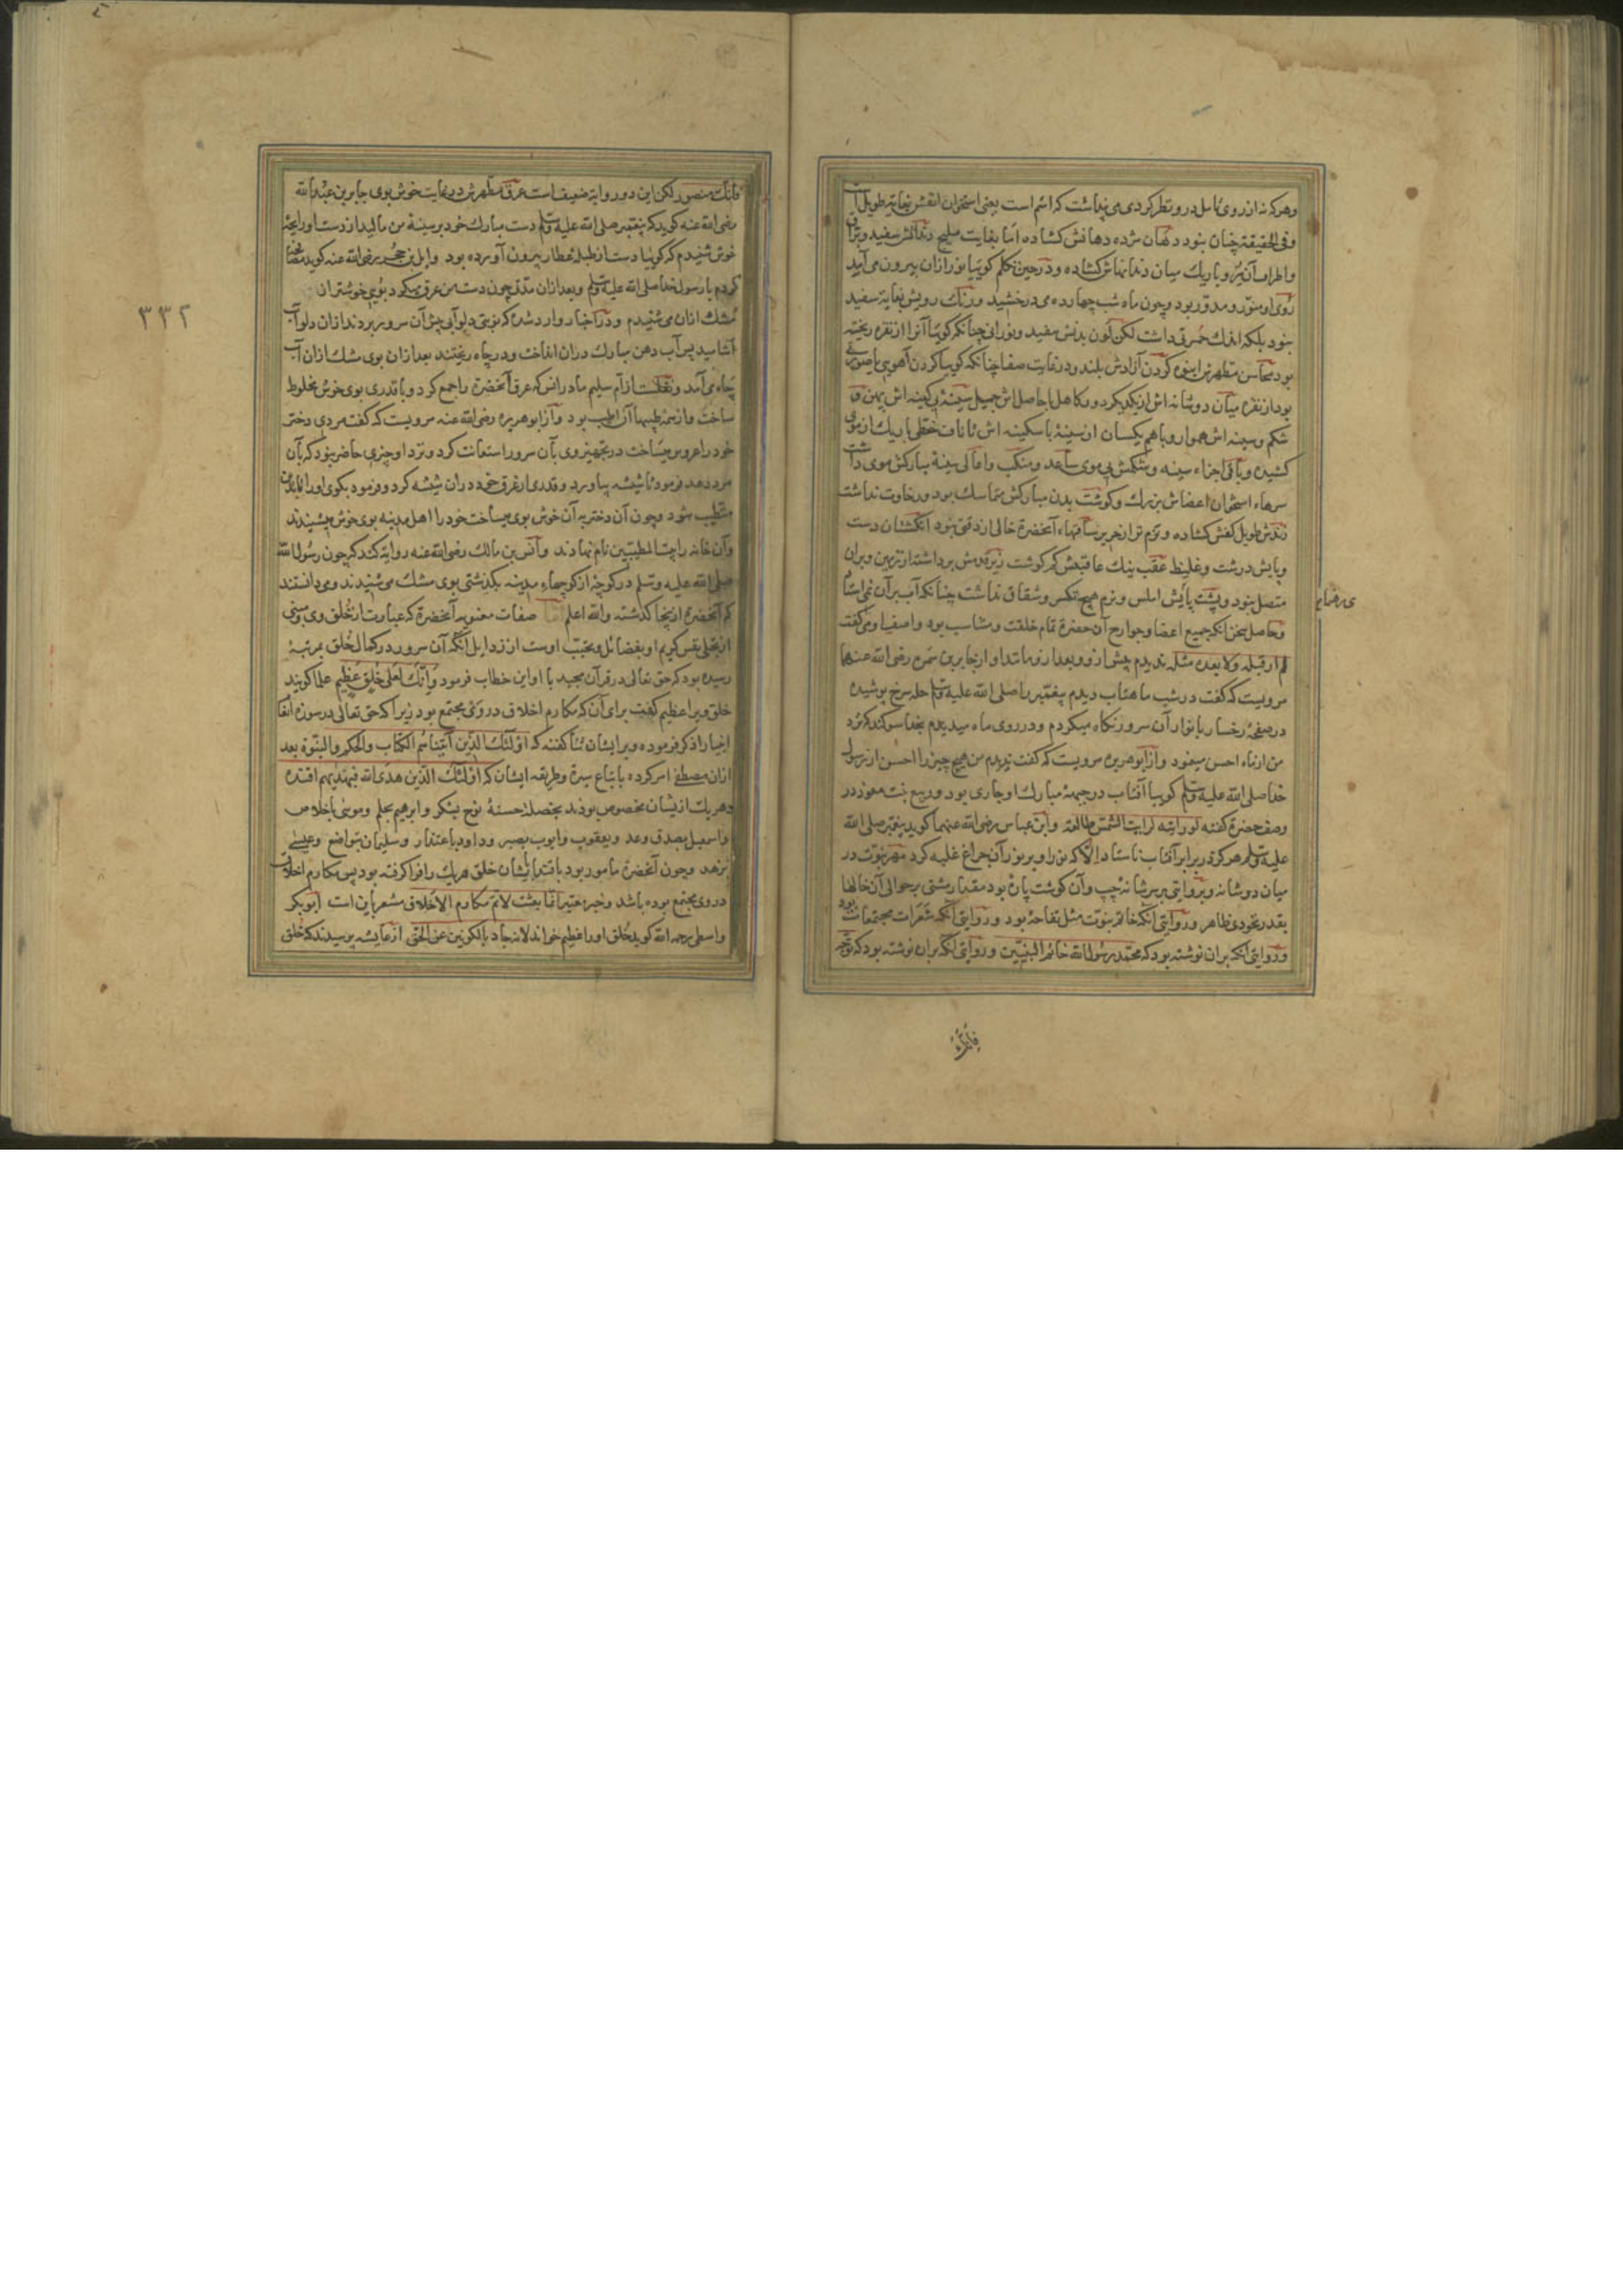 وهر که نه از روی تأمل در و نظر کردی می پنداشت که اشم است یعنی استخوان انفش بغایة طویل است
وفی الحقیقة چنان نبود دهان مژده دهانش کشاده اما بغایت ملیح دندانش سفید وبراق
واطراف آن تیز و باریک میان دندانهاش کشاده ودر حین تکلم کوییا نور ازان بیرون می آمد
روی او منور و مدور بود وچون ماه شب چهارده می درخشید ورنک رویش بغایة سفید
نبود بلکه اندک حمرتی داشت لکن لون بدنش سفید ونورانی چنانکه کوییا آنرا از نقره ریخته
بود محاسن مطهرش انبوه کردن آزادش بلند ودر غایت صفا چنانکه کوییا کردن آهویی یا صورتی
بود از نقره میان دو شانه اش از یکدیکر دور کاهل با حاصل اش جمیل سینهٔ بی کینه اش پهن
شکم وسینه اش هموار وباهم یکسان از سینهٔ با سکینه اش تا ناف خطی باریک از موی
کشیده وباقی اجزاء سینه وشکمش بی موی ساعد ومنکب واعالی سینهٔ مبارکش موی داشت
سرهاء استخوان اعضاش بزرک وکوشت بدن مبارکش متماسک بود ورخاوت نداشت
زندش طویل کفش کشاده ونرم تر از حریر ساقهاء آنحضرة خالی از دقتی نبود انکشتان دست
وپایش درشت وغلیظ عقب عاقبتش کم کوشت زیر قدمش برداشته از زمین وبران
متصل نبود وپشت پایش املس ونرم هیچ تکسر وشقاق نداشت چنانکه آب بر آن نمی استاد
وحاصل سخن انکه جمیع اعضا وجوارح آن حضرة تمام خلقت ومتناسب بود واصفیا ومی کفت
لم ار قبله ولا بعده مثله ندیدم پیش از و وبعد از و مانند او از جابر بن سمره رضی الله عنهما
مرویست که کفت در شب ماهتاب دیدم پیغمبر را صلی الله علیه وسلم حله سرخ پوشیده
در صفحهٔ رخسار با نوار آن سرور نکاه میکردم ودر روی ماه میدیدم بخدا سوکند که نزد
من از ماه احسن مینمود واز ابو هریره مرویست که کفت ندیدم من هیچ چیز را احسن از رسول
خدا صلی الله علیه وسلم کوییا آفتاب در جبههٔ مبارک او جاری بود وربیع بنت معوذ در
وصف حضرة کفته لو رایته لرایت الشمس طالعة وابن عباس رضی الله عنهما کوید پیغمبر صلی الله
علیه وسلم هرکز در برابر آفتاب نا ستاد الا که نور او بر نور آن چراغ غلبه کرد مهر نبوت در
میان دو شانه وبروایتی بر سر شانهٔ چپ وآن کوشت پارهٔ بود مقدار مشتی بر حوالی آن خالها
بقدر نخودی ظاهر وروایتی آنکه خاتم نبوت مثل تفاحهٔ بود وروایتی آنکه شعرات مجتمعات بود
وروایتی آنکه بران نوشته بود که محمد رسول الله خاتم النبیین وروایتی آنکه بران نوشته بود که توجه
فانک
فانک منصور لکن این دو روایة ضعیف است عرق مطهرش در نهایت خوش بوی جابر بن عبد الله
رضی الله عنه کوید که پیغمبر صلی الله علیه وسلم دست مبارک خود بر سینهٔ من مالید از دست او رایحهٔ
خوش شنیدم که کوییا دست از طبلهٔ عطار بیرون آورده بود وایل بن حجر رضی الله عنه کوید مصافحه
کردم با رسول خدا صلی الله علیه وسلم وبعد ازان مدتی چون دست من عرق میکرد بویی خوشتر از
مشک ازان می شنیدم ودر اخبار وارد شده که نوبتی دلو آبی پیش آن سرور بردند ازان دلو آب
آشامید پس آب دهن مبارک دران انداخت ودر چاه ریختند بعد ازان بوی مشک ازان آب
چاه می آمد ونقلست از ام سلیم مادر انس که عرق آنحضرة را جمع کرد وبا قدری بوی خوش مخلوط
ساخت واز همه طیبها آن اطیب بود واز ابو هریره رضی الله عنه مرویست که کفت مردی دختر
خود را عروس میساخت در تجهیز وی بآن سرور استعانت کرد ونزد او چیزی حاضر نبود که بآن
مرد دهد فرمود تا شیشه بیاورد وقدری از عرق خود دران شیشه کرد وفرمود بکوی او را تا بدین
متطیب شود وچون آن دختر به آن خوش بوی میساخت خود را اهل مدینه بوی خوش میشنیدند
وآن خانه را بیت المطیبین نام نهادند وانس بن مالک رضی الله عنه روایة کند که چون رسول الله
صلی الله علیه وسلم در کوچهٔ از کوچهاء مدینه بکذشتی بوی مشک می شنیدند ومی دانستند
که آنحضرة از ینجا کذشته والله اعلم اما صفات معنویه آنحضرة که عبارت از خلق وی
از تحلی نفس کریم او بفضائل وتجنب اوست از رذایل آنکه آن سرور در کمال خلق بمرتبهٔ
رسیده بود که حق تعالی در قرآن مجید با او این خطاب فرمود وانک لعلی خلق عظیم علما کویند
خلق ویرا عظیم کفت برای آن که مکارم اخلاق در وی مجتمع بود زیرا که حق تعالی در سوره انعام
انبیا را ذکر فرموده وبر ایشان ثنا کفته که اولئک الذین آتیناهم الکتاب والحکم والنبوة بعد
ازان مصطفی امر کرده باتباع سیرة وطریقه ایشان که اولئک الذین هدی الله فبهدیهم اقتده
وهر یک از یشان مخصوص بودند بخصلهٔ حسنهٔ نوح بشکر وابرهیم بحلم وموسی باخلاص
واسمعیل بصدق وعد ویعقوب وایوب بصبر وداود باعتذار وسلیمان بتواضع وعیسی
بزهد وچون آنحضرة مامور بود باقتدا بایشان خلق هر یک را فرا کرفته بود پس مکارم اخلاق
در وی مجتمع بوده باشد وخبر معتبر انما بعثت لاتمم مکارم الاخلاق مشعر باین است ابو بکر
واسطی رحمه الله کوید خلق او را عظیم خواند لانه جاد بالکونین عن الحق از عایشه پرسیدند که خلق
۳۳۲